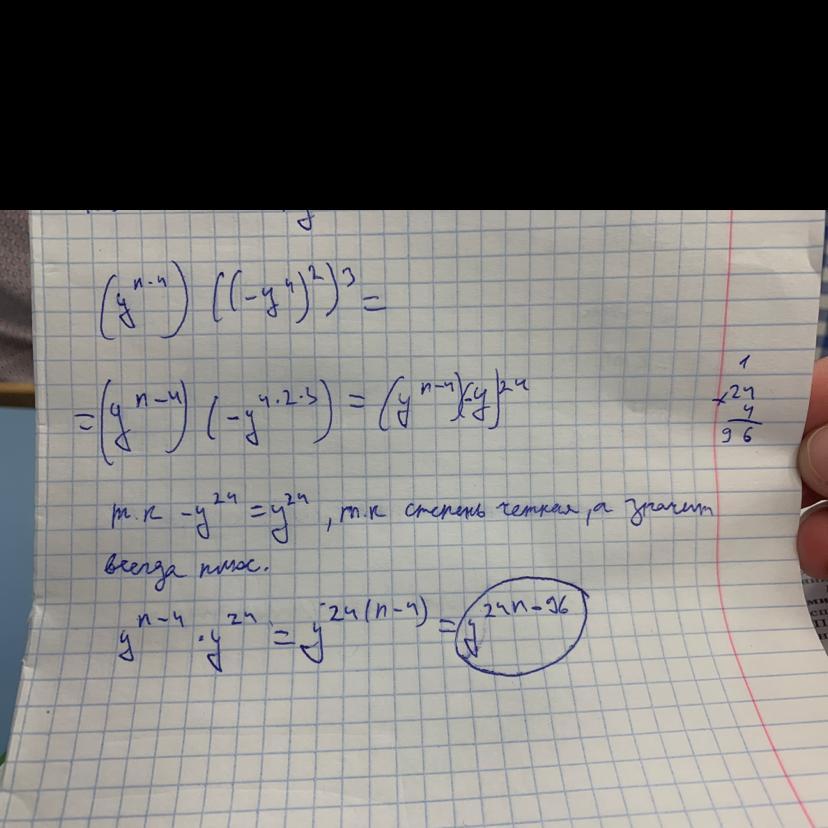 (y^{n-4}) ((-y^4)^2)^3 =
= (y^{n-4}) (-y^{4·2·3}) = (y^{n-4})(-y)^{24}
1
×24
4
96
т.к -y^{24} = y^{24}, т.к степень четная, а значит
всегда плюс.
y^{n-4} · y^{24} = y^{24(n-4)} = y^{24n-96}